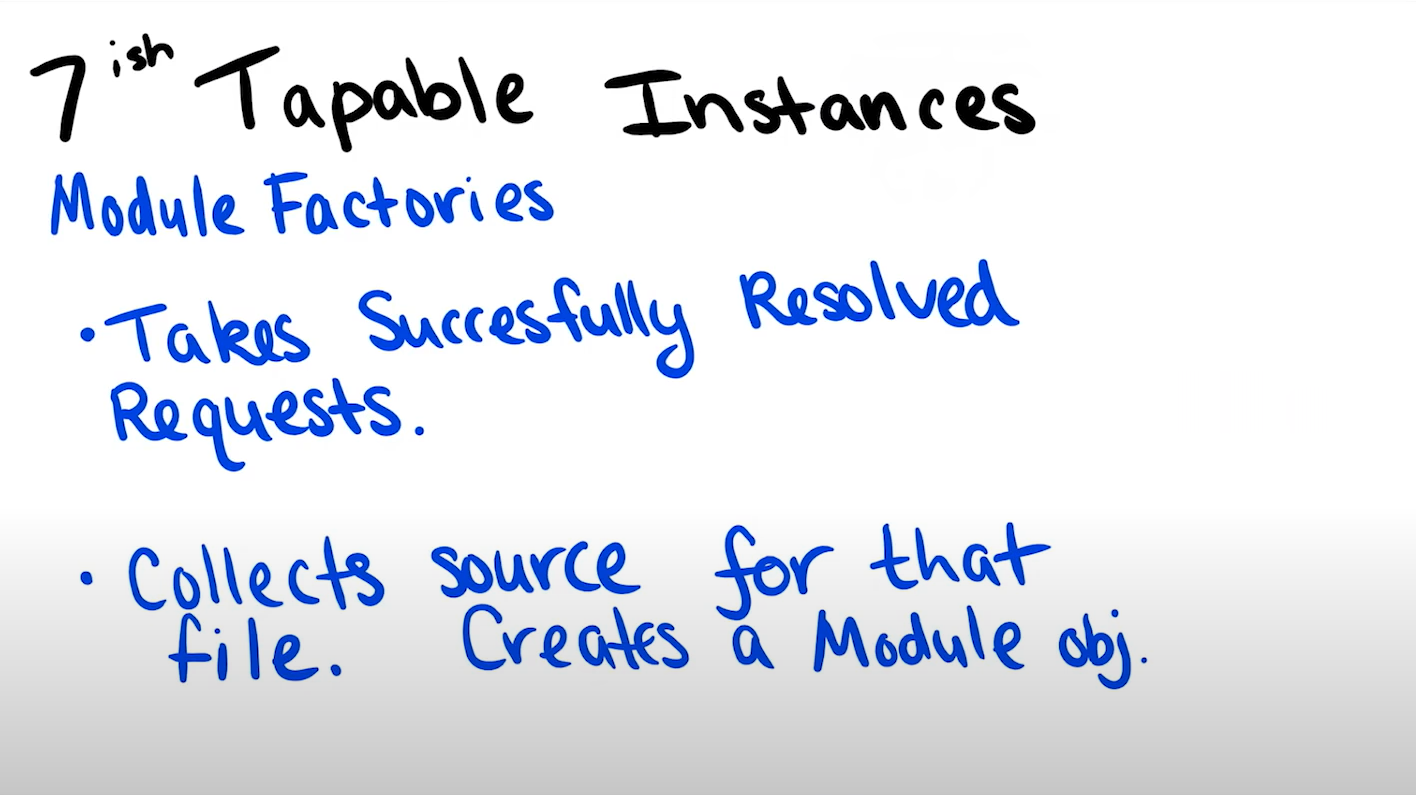 7 ish Tapable Instances
Module Factories
• Takes Succesfully Resolved
Requests.
• Collects source for that
file. Creates a Module obj.